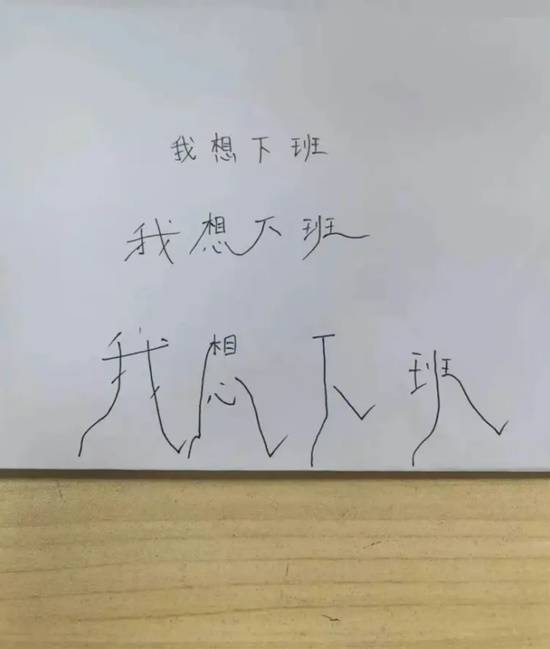 我想下班
我想下班
我想下班